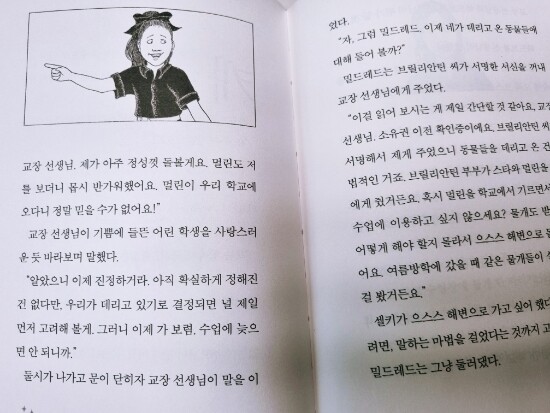 교장 선생님. 제가 아주 정성껏 돌볼게요. 멀린도 저
를 보더니 몹시 반가워했어요. 멀린이 우리 학교에
오다니 정말 믿을 수가 없어요!"
교장 선생님이 기쁨에 들뜬 어린 학생을 사랑스러
운 듯 바라보며 말했다.
"알았으니 이제 진정하거라. 아직 확실하게 정해진
건 없다만, 우리가 데리고 있기로 결정되면 널 제일
먼저 고려해 볼게. 그러니 이제 가 보렴. 수업에 늦으
면 안 되니까."
둘시가 나가고 문이 닫히자 교장 선생님이 말을 이
었다.
"자, 그럼 밀드레드. 이제 네가 데리고 온 동물들에
대해 들어 볼까?"
밀드레드는 브릴리안틴 씨가 서명한 서신을 꺼내
교장 선생님에게 주었다.
"이걸 읽어 보시는 게 제일 간단할 것 같아요, 교장
선생님. 소유권 이전 확인증이에요. 브릴리안틴 씨
서명해서 제게 주었으니 동물들을 데리고 온 건
법적인 거죠. 브릴리안틴 부부가 스타와 멀린을
에게 줬거든요. 혹시 멀린을 학교에서 기르면서
수업에 이용하고 싶지 않으세요? 물개도 받
어떻게 해야 할지 몰라서 으스스 해변으로
어요. 여름방학에 갔을 때 같은 물개들이
걸 봤거든요."
셀키가 으스스 해변으로 가고 싶어 했다
려면, 말하는 마법을 걸었다는 것까지 고
밀드레드는 그냥 둘러댔다.